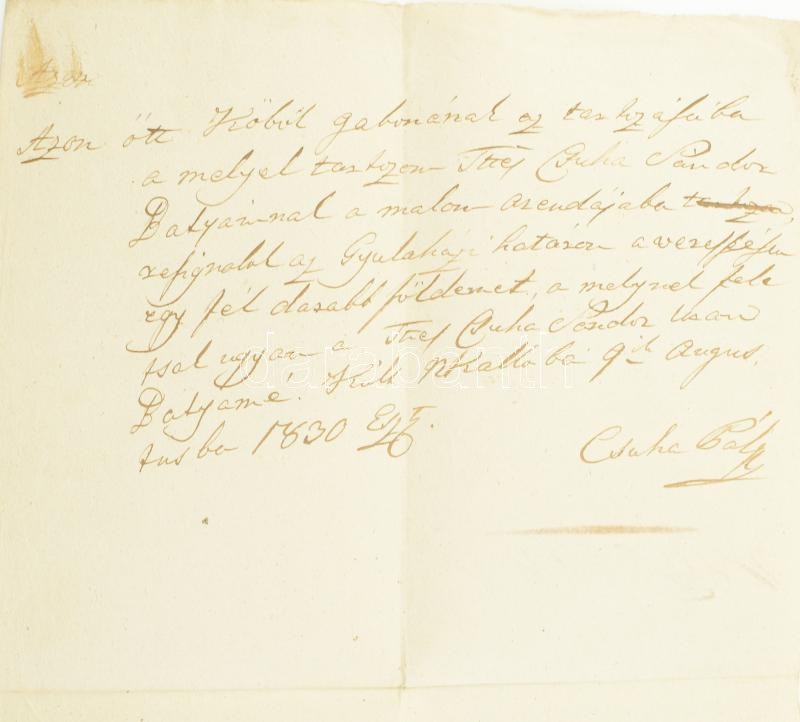 Azon
Azon ött Köböl gabonának az tartozásába
a melyel tartozom Ttes Csuha Sándor
Batyámnak a malom arendájaba
resignalok az Gyulaházi határon a
egy fél darabb földemet, a melynek fele
tsak ugyan a Ttes Csuha Sándor Uram
Batyamé. Költ NKallóba 9ik Augus.
tusba 1830 Eszt.
Csuha Pál
darabanth